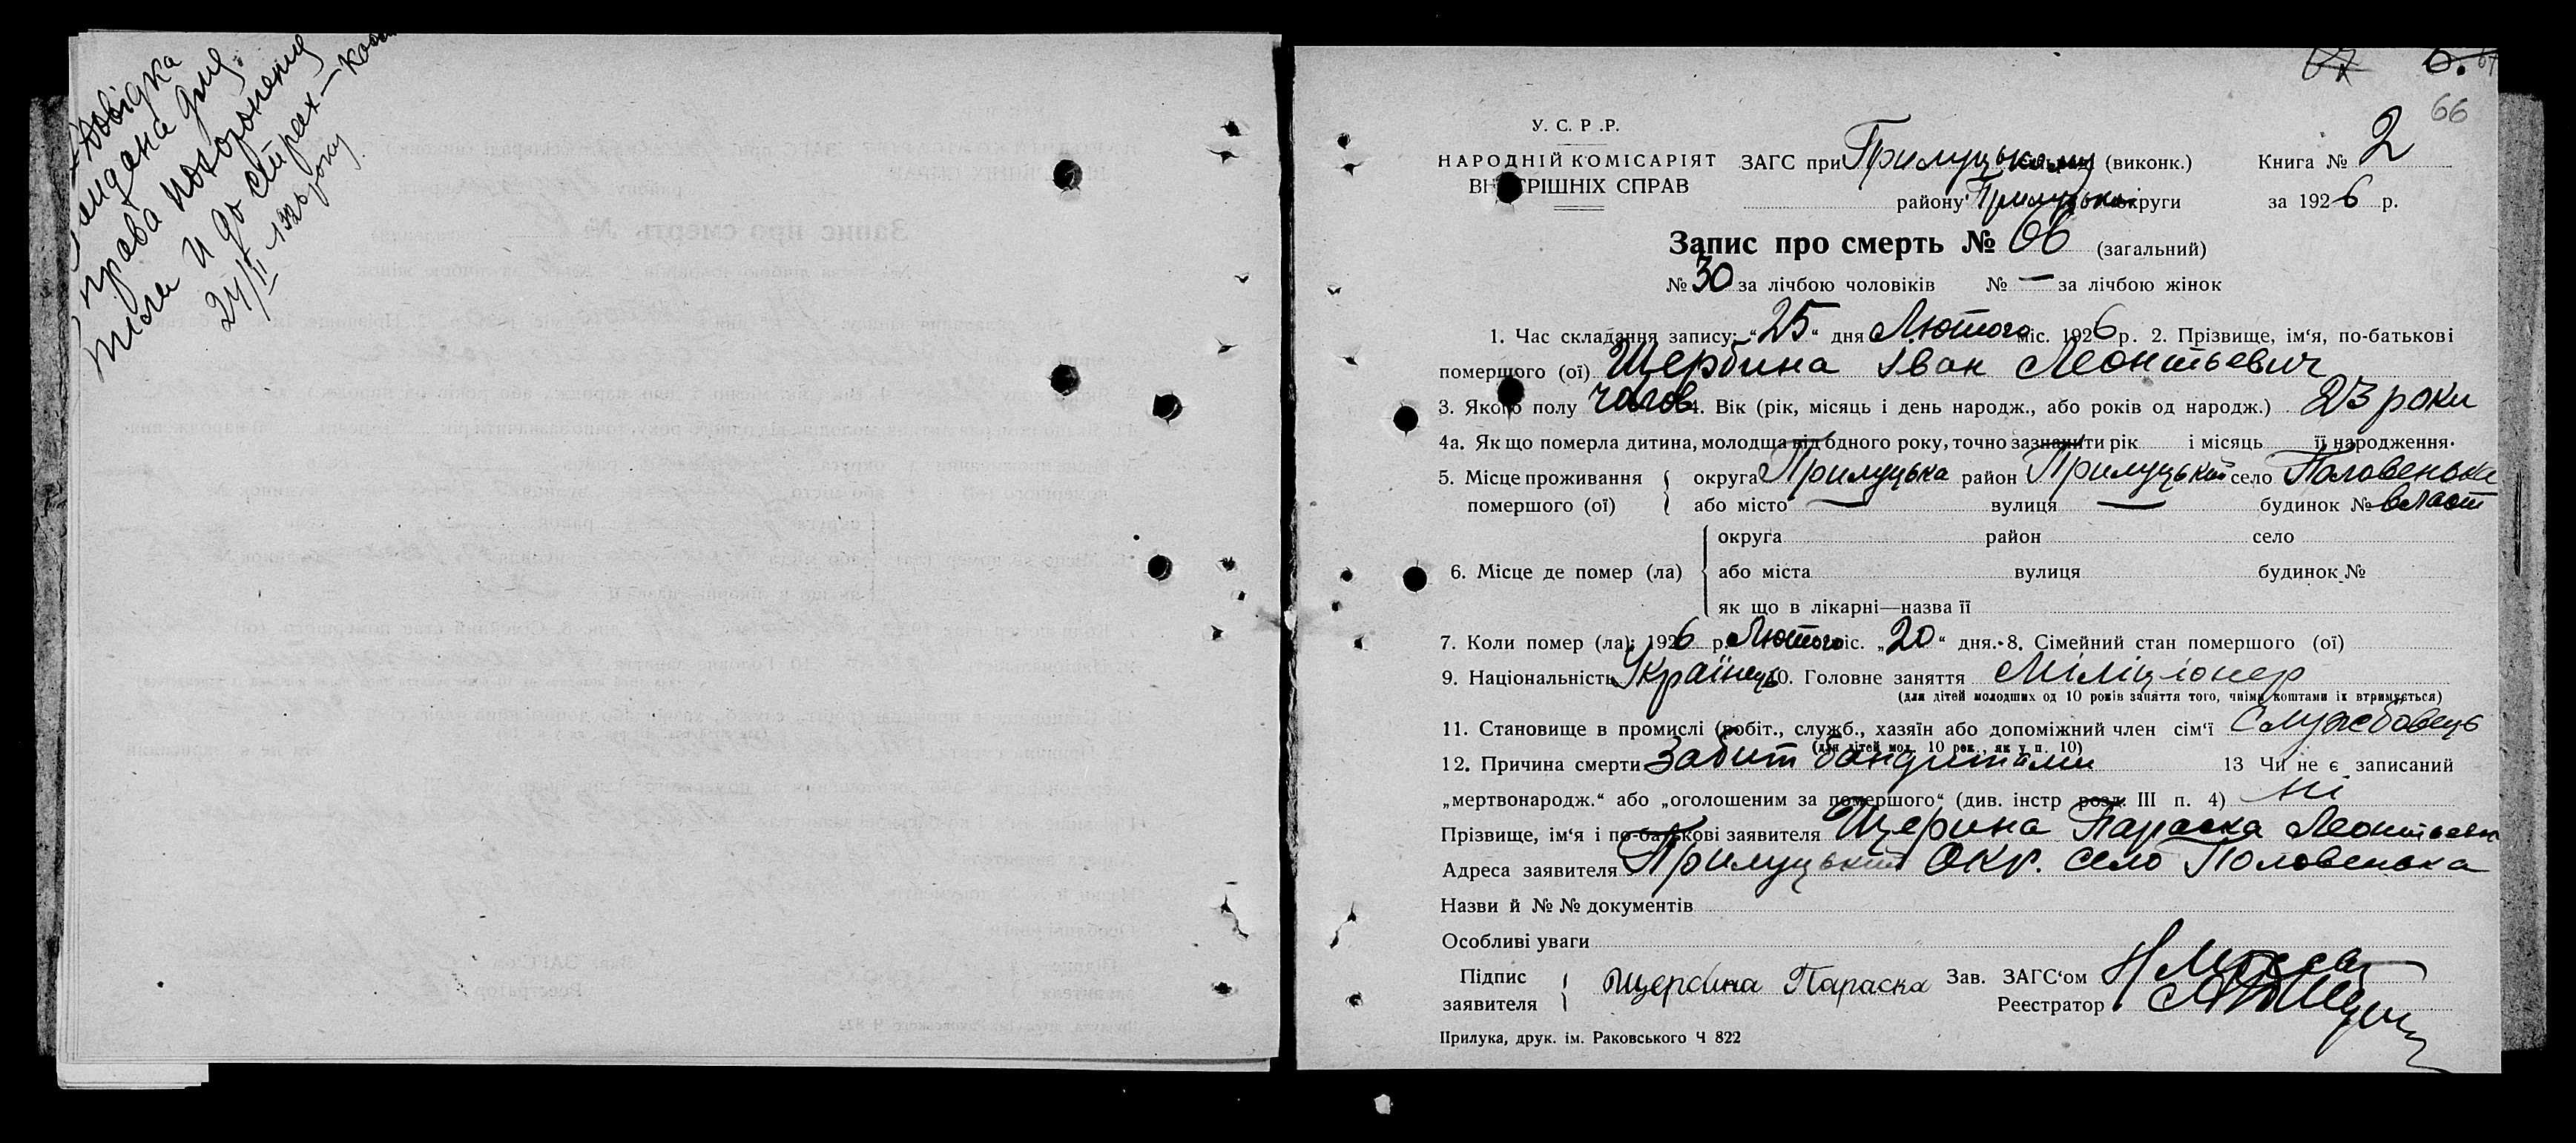 Довідка
видана для
права похоронення
тіла и до страх-каси
24/II 1926 року
67 6. 67
66
У. С. Р. Р.
НАРОДНІЙ КОМІСАРІЯТ
ВНУТРІШНІХ СПРАВ
ЗАГС при Прилуцькому (виконк.)
району Прилуцька округи
Книга № 2
за 1926 р.
Запис про смерть № 66 (загальний)
№ 30 за лічбою чоловіків № — за лічбою жінок
1. Час складання запису: „25“ дня Лютого міс. 1926 р. 2. Прізвище, ім‘я, по-батькові
помершого (ої) Щербина Іван Леонтьевич
3. Якого полу чолов 4. Вік (рік, місяць і день народж., або років од народж.) 23 роки
4а. Як що померла дитина, молодща від одного року, точно зазначити рік і місяць її народження.
5. Місце проживання помершого (ої) округа Прилуцька район Прилуцький село Половенька
або місто — вулиця — будинок № власт
6. Місце де помер (ла) округа район село
або міста вулиця будинок №
як що в лікарні—назва її
7. Коли помер (ла): 1926 р. Лютого міс. „20“ дня. 8. Сімейний стан помершого (ої)
9. Національність Українець 10. Головне заняття Міліціонер
(для дітей молодших од 10 років заняття того, чиїми коштами їх втримується)
11. Становище в промислі (робіт., служб., хазяїн або допоміжний член сім‘ї Службовець
(для дітей мол. 10 рок., як у п. 10)
12. Причина смерти Забит бандитами 13 Чи не є записаний
„мертвонародж.“ або „оголошеним за помершого“ (див. інстр розд. III п. 4) ні
Прізвище, ім‘я і по-батькові заявителя Щерина Параска Леонтьевн
Адреса заявителя Прилуцький Окр. село Половенька
Назви й №№ документів
Особливі уваги
Підпис заявителя Щербина Параска Зав. ЗАГС‘ом
Реестратор
Прилука, друк. ім. Раковського Ч 822